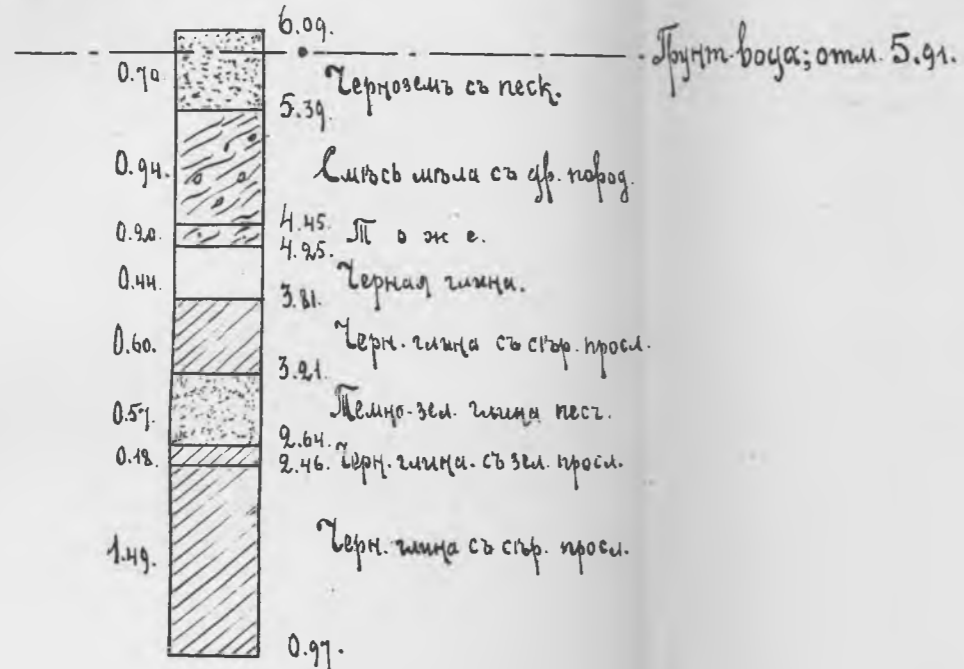 6.09.
Грунт. вода; отм. 5.91.
0.70
Черноземъ съ песк.
5.39.
0.94.
Смѣсь мѣла съ др. пород.
4.45.
0.20.
Тоже.
4.25.
0.44.
Черная глина.
3.81.
0.60.
Черн. глина съ сѣр. просл.
3.21.
0.57.
Темно-зел. глина песч.
2.64.
0.18.
2.46. Черн. глина. съ зел. просл.
1.49.
Черн. глина съ сѣр. просл.
0.97.